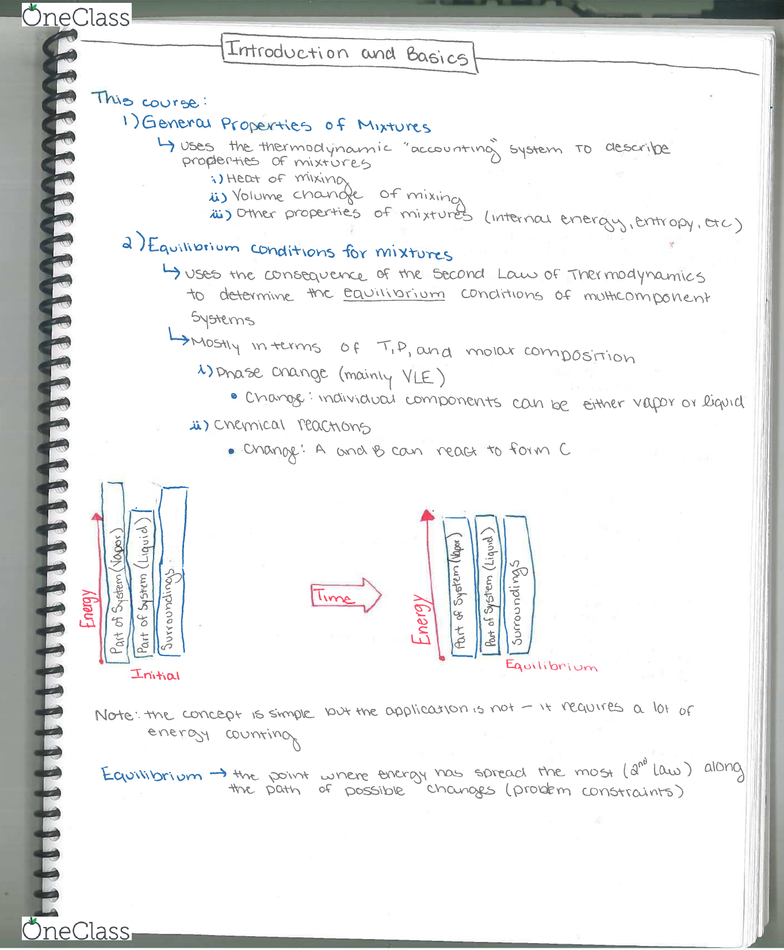 OneClass
Introduction and Basics
This course:
1) General Properties of Mixtures
↳ uses the thermodynamic "accounting" system to describe
properties of mixtures
i) Heat of mixing
ii) Volume change of mixing
iii) Other properties of mixtures (internal energy, entropy, etc)
2) Equilibrium conditions for mixtures
↳ uses the consequence of the Second Law of Thermodynamics
to determine the equilibrium conditions of multicomponent
systems
↳ Mostly in terms of T, P, and molar composition
i) Phase change (mainly VLE)
• Change: individual components can be either vapor or liquid
ii) Chemical reactions
• Change: A and B can react to form C
Energy
Part of System (Vapor)
Part of System (Liquid)
Surroundings
Initial
Time
Energy
Part of System (Vapor)
Part of System (Liquid)
Surroundings
Equilibrium
Note: the concept is simple but the application is not – it requires a lot of
energy counting
Equilibrium → the point where energy has spread the most (2nd law) along
the path of possible changes (problem constraints)
OneClass